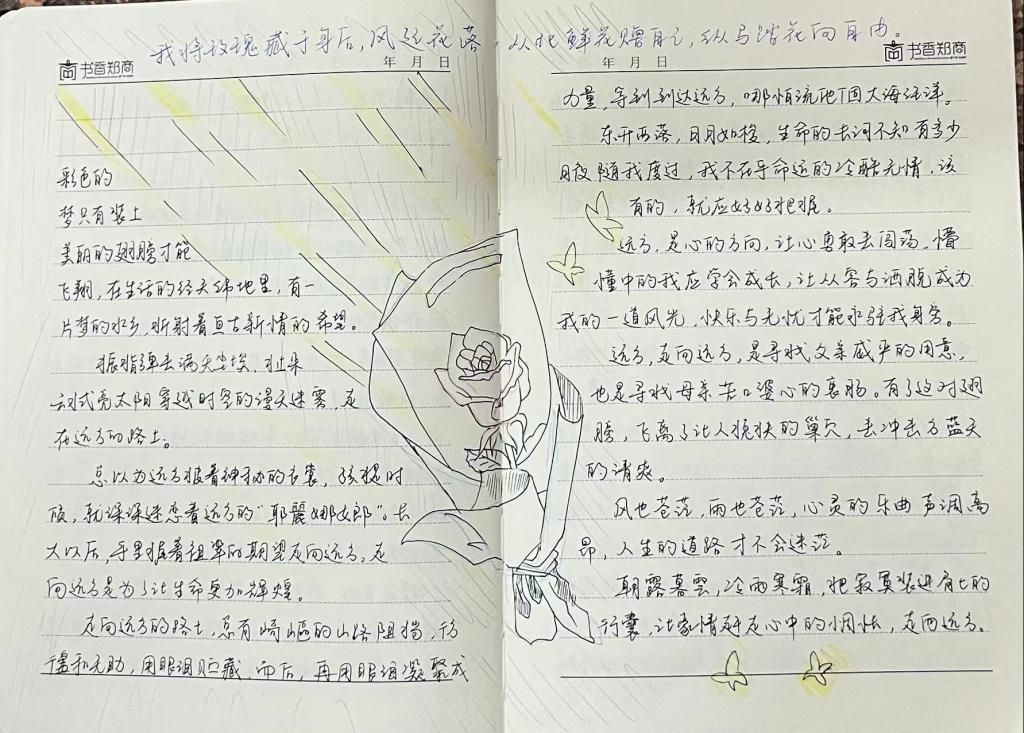 我将玫瑰藏于身后,风起花落
从此鲜花赠自己,纵马踏花向自由。
书香郑商
年 月 日
年 月 日
书香郑商
彩色的
梦只有装上
美丽的翅膀才能
飞翔,在生活的经天纬地里,有一
片梦的水乡,折射着亘古新情的希望。
振指弹去满天尘埃,扯朵
云拭亮太阳穿越时空的漫天迷雾,走
在远方的路上。
总以为远方披着神秘的衣裳,孩提时
候,就深深迷恋着远方的“耶丽娜女郎”。长
大以后,手里握着祖辈的期望走向远方,走
向远方是为了让生命更加辉煌。
走向远方的路上,总有崎岖的山路阻挡,彷
徨和无助,用眼泪贮藏,而后,再用眼泪凝聚成
力量,等到到达远方,哪怕流他个大海汪洋。
东升西落,日月如梭,生命的长河不知有多少
日夜随我度过,我不在乎命运的冷酷无情,该
有的,就应好好把握。
远方,是心的方向,让心勇敢去闯荡,懵
懂中的我应学会成长,让从容与洒脱成为
我的一道风光,快乐与无忧才能永驻我身旁。
远方,走向远方,是寻找父亲威严的用意,
也是寻找母亲苦口婆心的衷肠。有了这对翅
膀,飞离了让人疲惫的巢穴,去冲击方蓝天
的清爽。
风也苍茫,雨也苍茫,心灵的乐曲声调高
昂,人生的道路才不会迷茫。
朝露暮雲,冷雨寒霜,把寂寞装进肩上的
行囊,让豪情赶走心中的惆怅,走西远方。